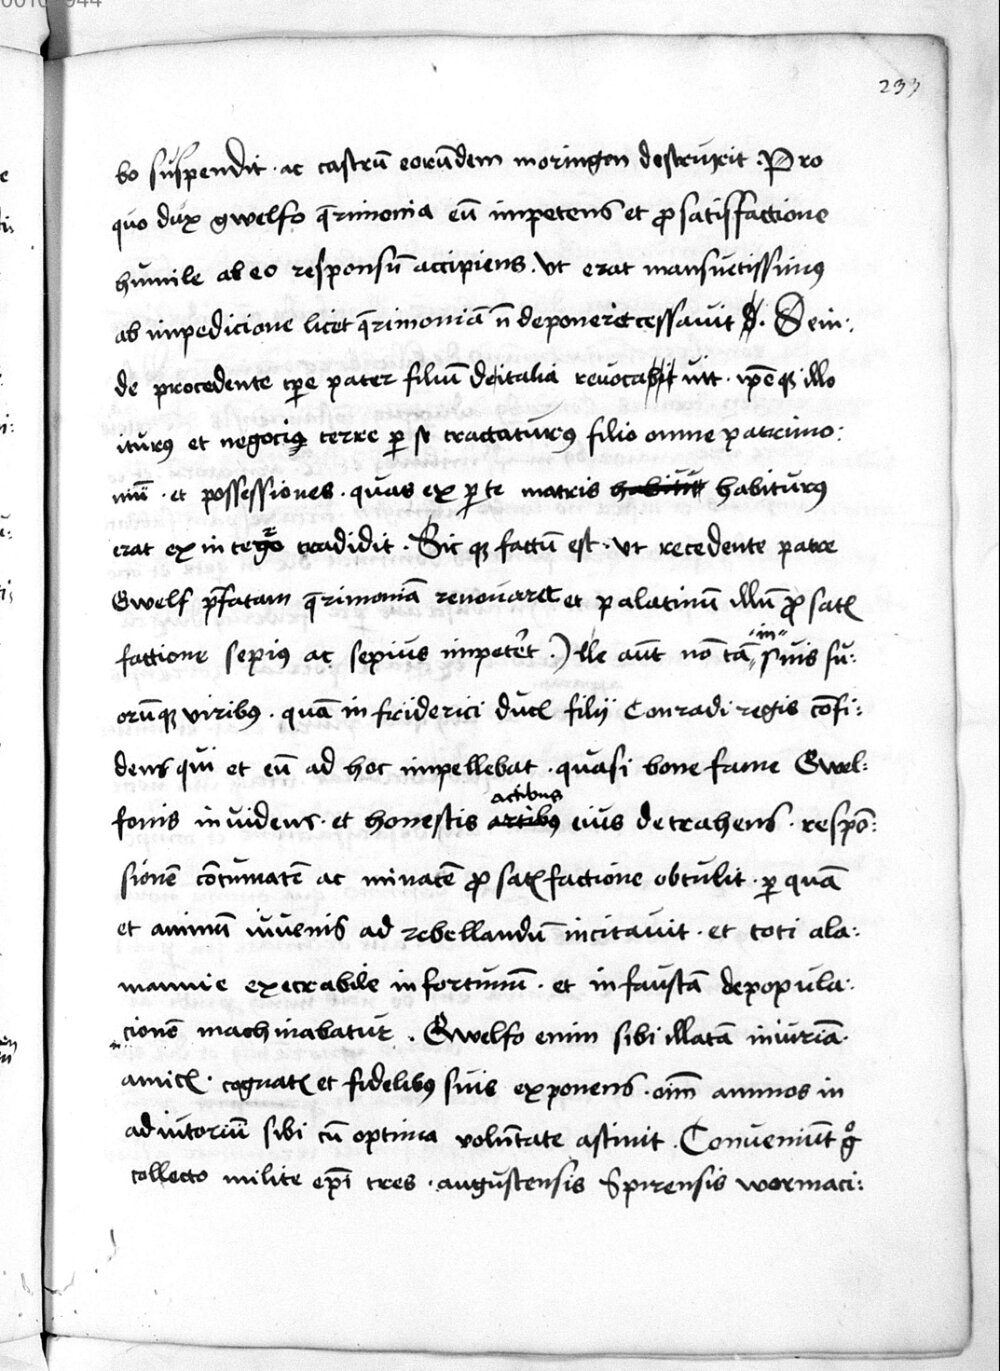 233
bo suspendit · ac castrū eorūdem moringen destruxit · Pro
quo dux gwelfo q̄rimonia eū impetens et ꝓ satisfactione
humile ab eo responsū accipiens · Ut erat mansuetissimꝯ
ab impedicione licet q̄rimoniā n̄ deponeret cessauit · Dein:
de procedente tp̄e pater filiū de italia reuocauit · ip̄eqꝫ illo
iturꝯ et negociꝯ terre ꝑ se tractaturꝯ filio omne patrimo:
niū · et possessiones · quas ex ꝑte matris habiturꝯ
erat ex integro tradidit · Sic qꝫ factū est · ut recedente patre
Gwelf p̄fatam q̄rimoniā renouaret et palatinū illū ꝓ satꝭ
factione sepiꝯ ac sepius impeteret · Ille aūt nō tā in suis su:
orūqꝫ viribꝯ · quā in friderici ducꝭ filij Conradi regis cōfi:
dens qui et eū ad hoc impellebat · quasi bone fame Gwel:
fonis inuidens · et honestis actibus eius detrahens · respō:
sionē cōtumatē ac minatē ꝓ satꝭfactione obtulit · ꝑ quā
et animū iuuenis ad rebellandū incitauit · et toti ala:
mannie execrabile infortuniū · et infaustā depopula:
cionē machinabatur · Gwelfo enim sibi illatā iniuriā ·
amicꝭ · cognatꝭ et fidelibꝯ suis exponens · oīm animos in
adiutoriū sibi cū optima volūtate astinit · Conueniūt gͦ
collecto milite ep̄i tres · augustensis Spirensis wormaci: